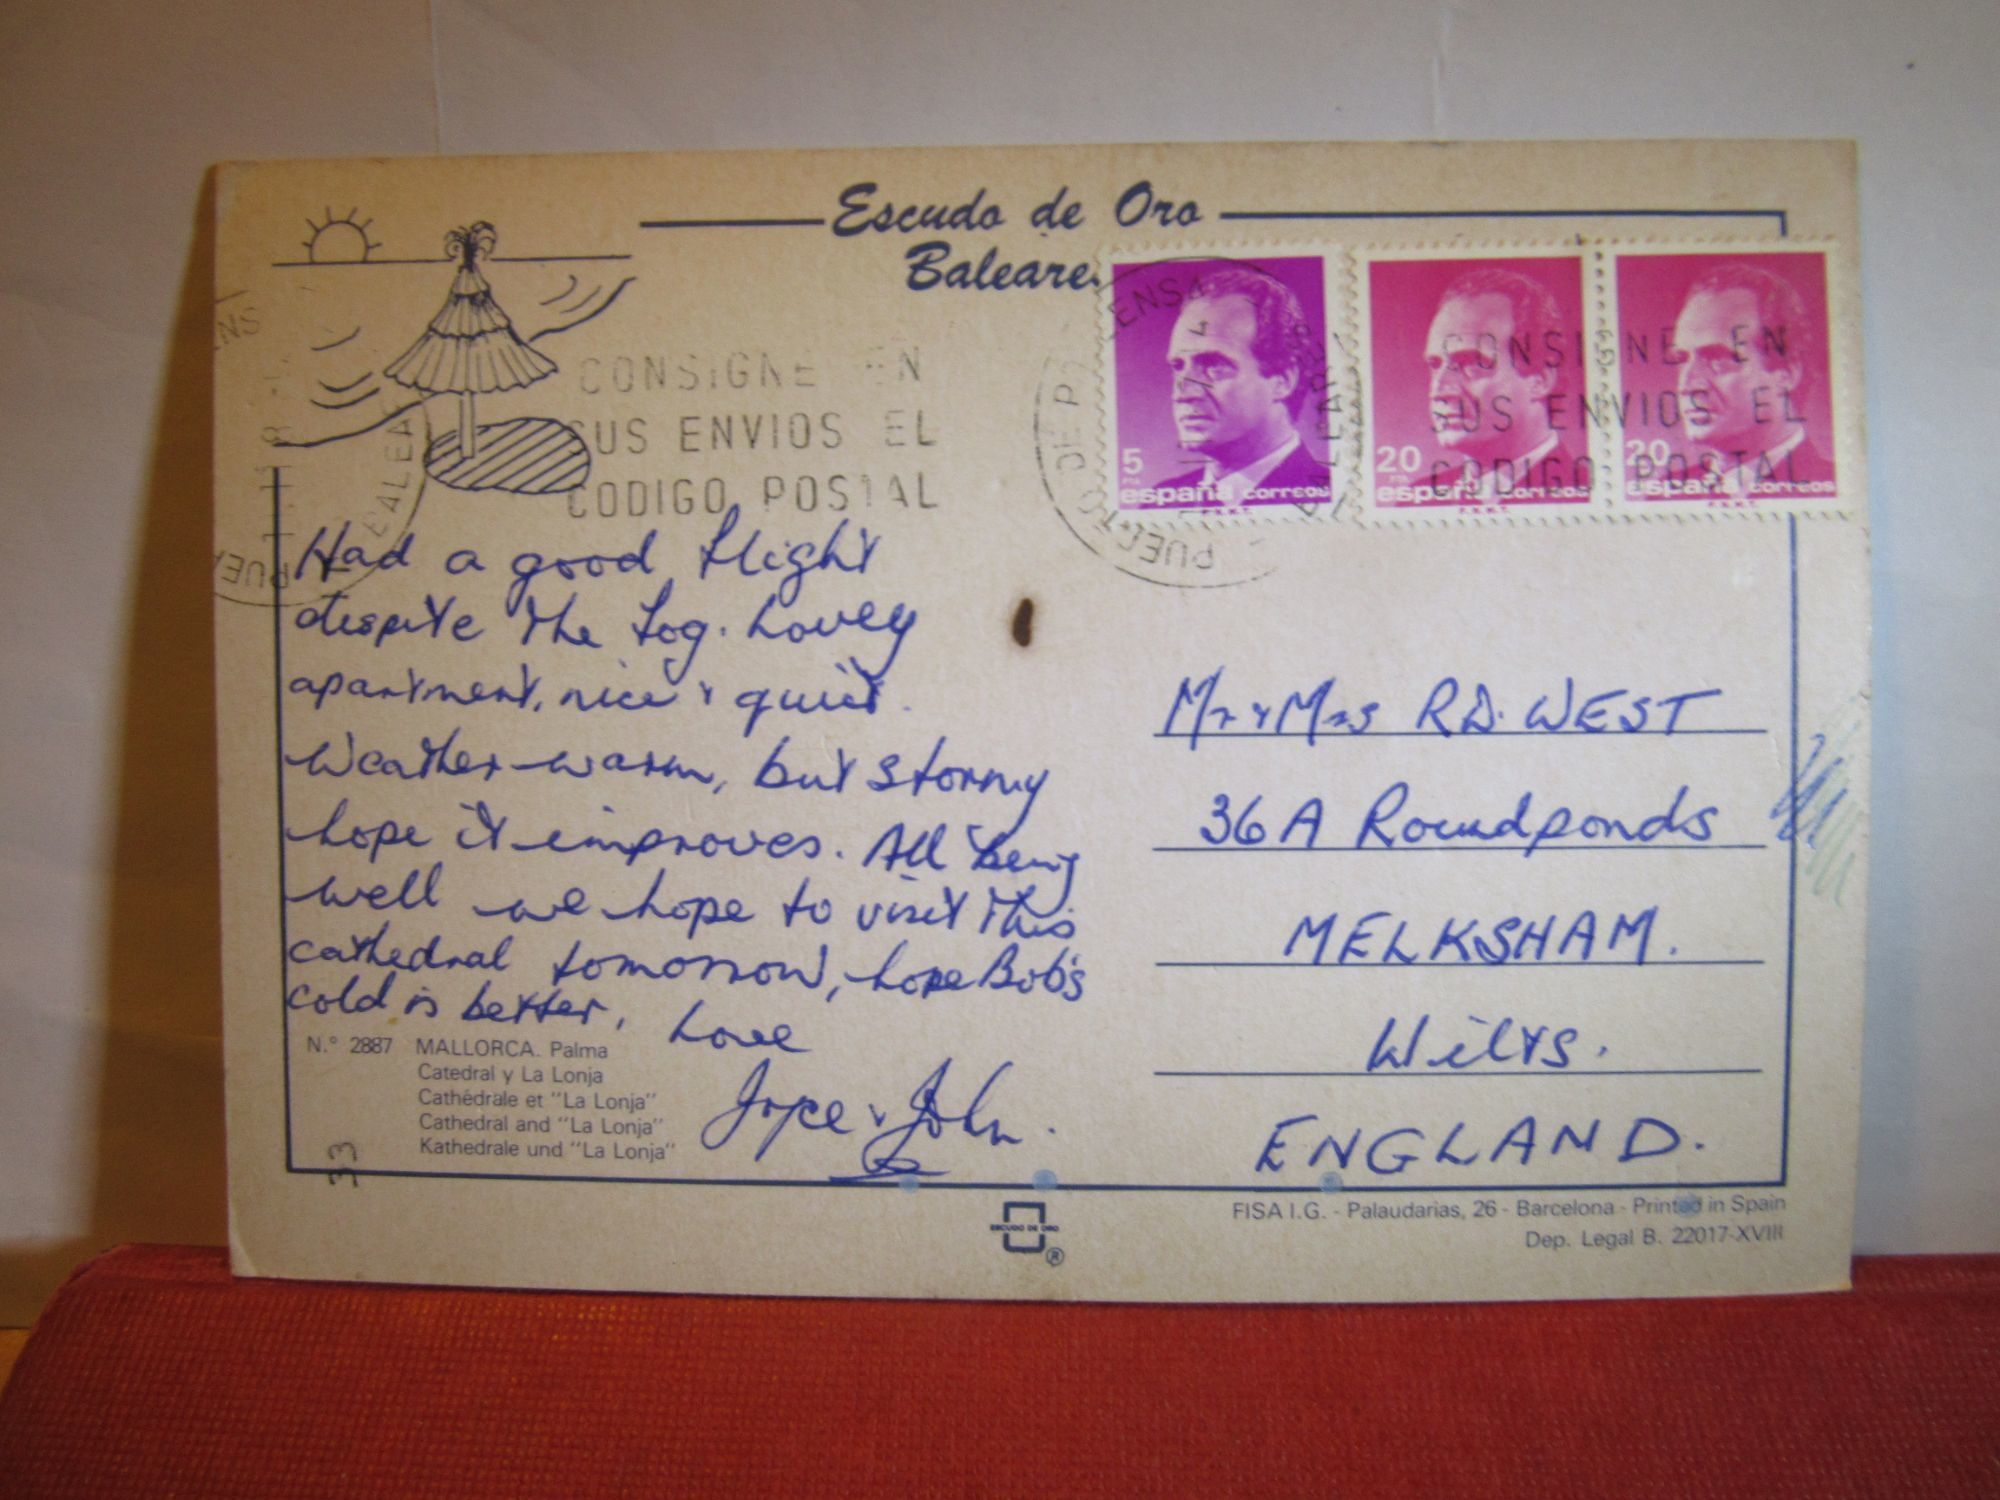 Escudo de Oro
Baleare
CONSIGNE EN
SUS ENVIOS EL
CODIGO POSTAL
PUERTO DE P LENSA
BALEARES
5
PTA
españa correos
F.N.M.T.
20
PTA
españa correos
F.N.M.T.
20
españa correos
F.N.M.T.
CONSIGNE EN
SUS ENVIOS EL
CODIGO POSTAL
ENS
BALEA
PUE
Had a good flight
despite the fog. Lovely
apartment, nice & quiet.
Weather warm, but stormy
hope it improves. All being
well we hope to visit this
cathedral tomorrow, hope Bob's
cold is better, Love
Joyce & John.
Mr & Mrs R.D. WEST
36A Roundponds
MELKSHAM.
Wilts.
ENGLAND.
N.° 2887 MALLORCA. Palma
Catedral y La Lonja
Cathédrale et "La Lonja"
Cathedral and "La Lonja"
Kathedrale und "La Lonja"
33
ESCUDO DE ORO
®
FISA I.G. - Palaudarias, 26 - Barcelona - Printed in Spain
Dep. Legal B. 22017-XVIII